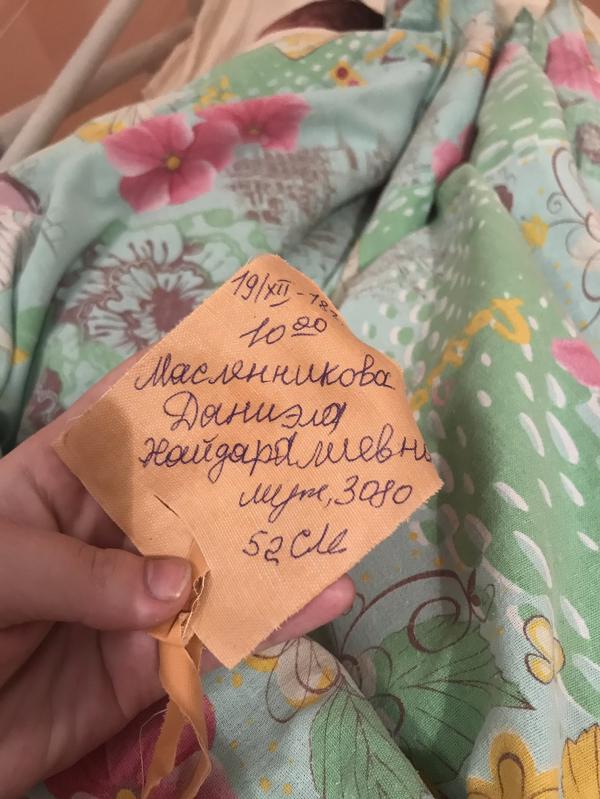 19/XII-18г.
10 20
Масленникова
Даниэла
Жайдаралиевна
муж, 3080
52 см